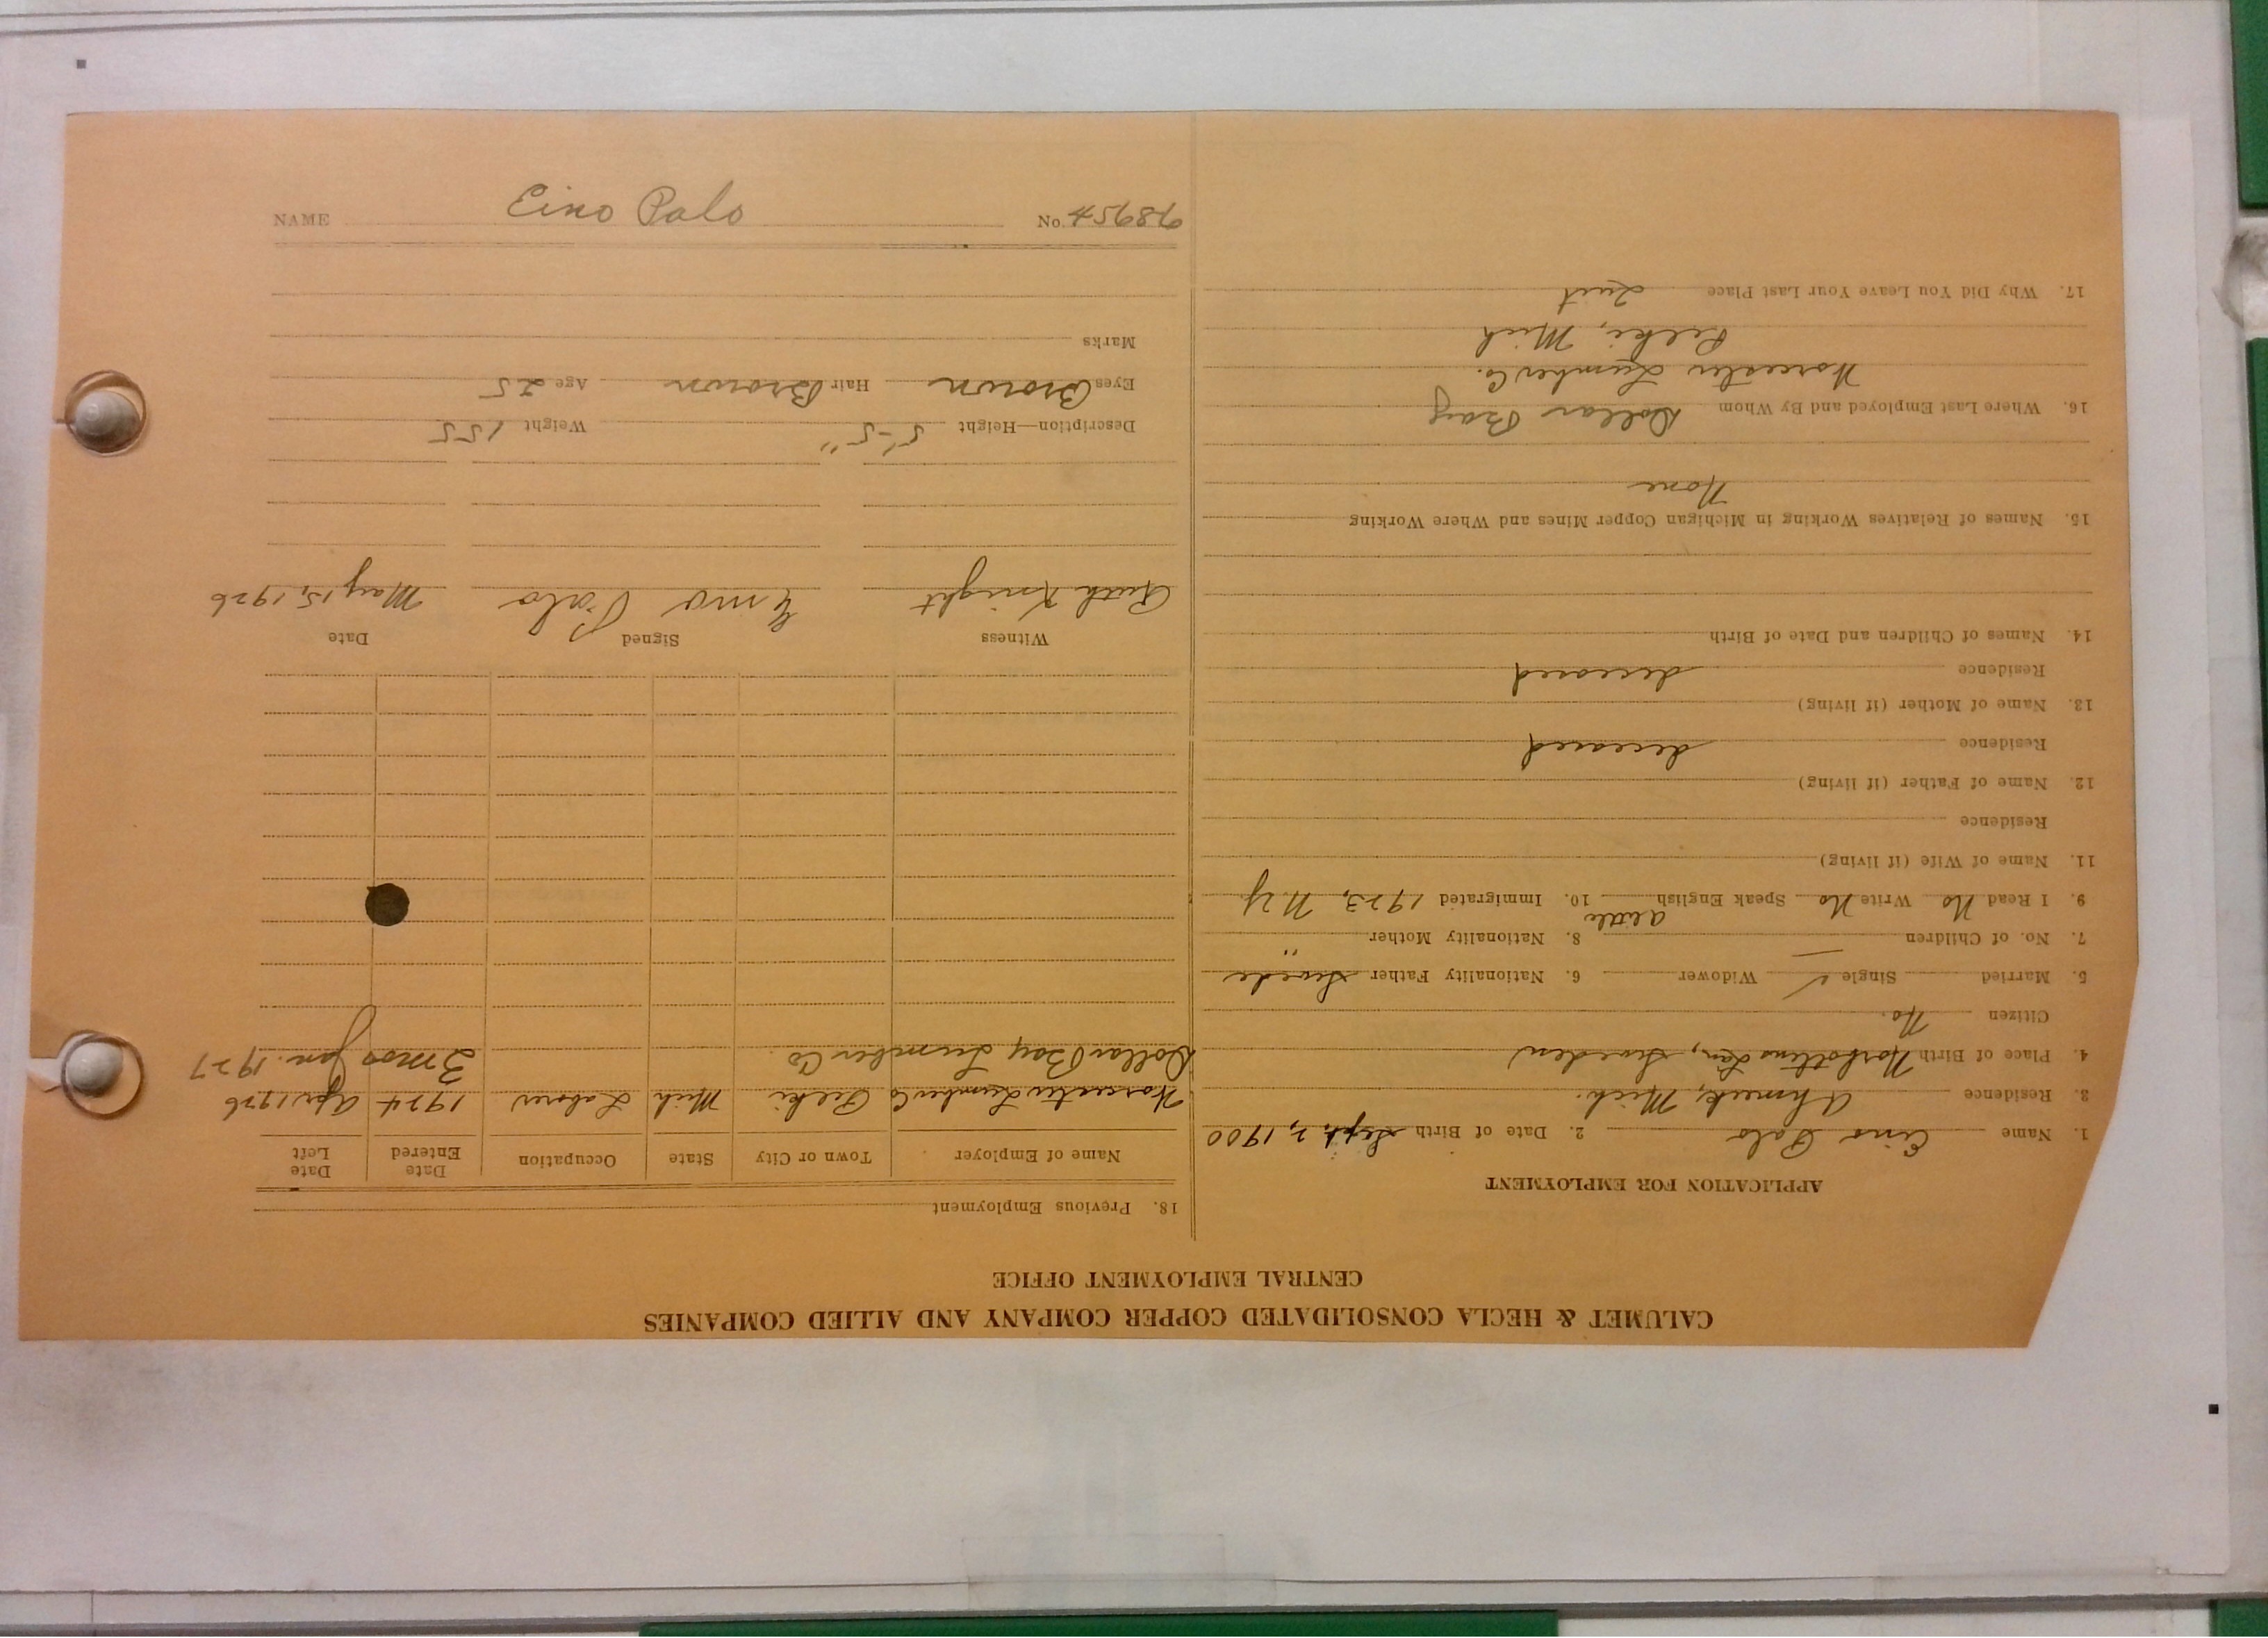 CALUMET & HECLA CONSOLIDATED COPPER COMPANY AND ALLIED COMPANIES
CENTRAL EMPLOYMENT OFFICE
APPLICATION FOR EMPLOYMENT
1. Name Eino Palo 2. Date of Birth Sept. 2, 1900
3. Residence Ahmeek, Mich.
4. Place of Birth Norbottens Lan, Sweden
Citizen No.
5. Married Single ✓ Widower 6. Nationality Father Swede
7. No. of Children — 8. Nationality Mother "
9. I Read No Write No Speak English a little 10. Immigrated 1923, N.Y
11. Name of Wife (if living)
Residence
12. Name of Father (if living)
Residence deceased
13. Name of Mother (if living)
Residence deceased
14. Names of Children and Date of Birth
15. Names of Relatives Working in Michigan Copper Mines and Where Working
None
16. Where Last Employed and By Whom Dollar Bay
Worcester Lumber Co.
Pelkie, Mich
17. Why Did You Leave Your Last Place Quit
18. Previous Employment
Name of Employer Town or City State Occupation Date Entered Date Left
Worcester Lumber Co Pelkie Mich Laborer 1924 Apr. 1926
Dollar Bay Lumber Co. 3 mos Jan. 1927
Witness Signed Date
Ruth Knight Eino Palo May 15, 1926
Description—Height 5'-5" Weight 155
Eyes Brown Hair Brown Age 25
Marks
NAME Eino Palo No.